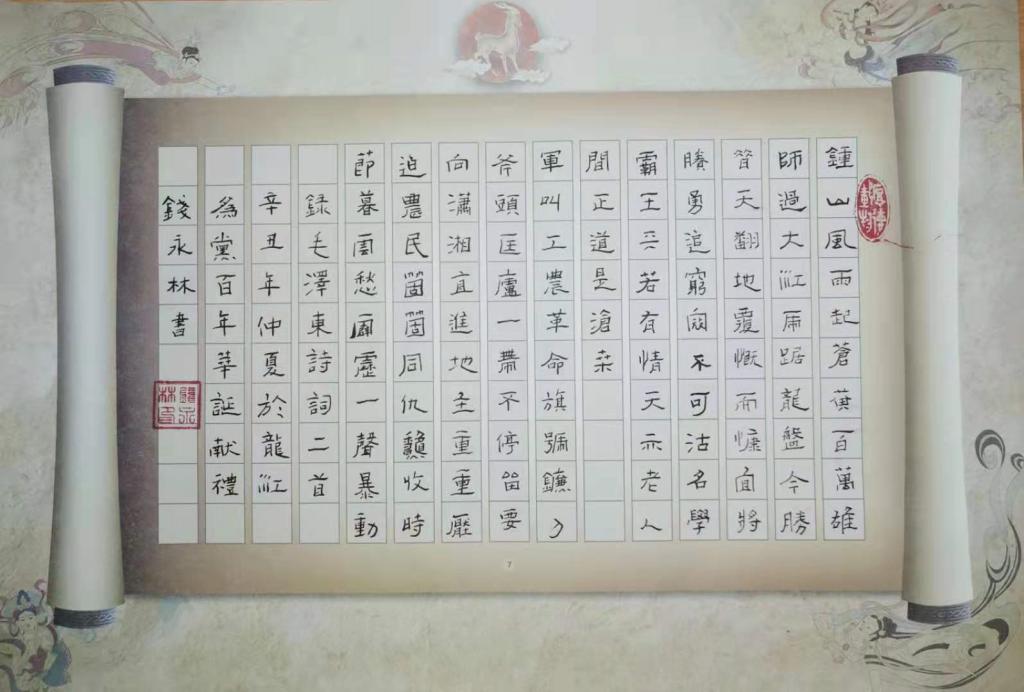 鍾山風雨起蒼黃百萬雄
師過大江虎踞龍盤今勝
昔天翻地覆慨而慷宜將
勝勇追窮寇不可沽名學
霸王天若有情天亦老人
間正道是滄桑
軍叫工農革命旗號鐮刀
斧頭匡廬一帶不停留要
向瀟湘直進地主重重壓
迫農民箇箇同仇龝收時
節暮雲愁霹靂一聲暴動
錄毛澤東詩詞二首
辛丑年仲夏於龍江
為黨百年華誕献禮
錢永林書
錢永林印
7